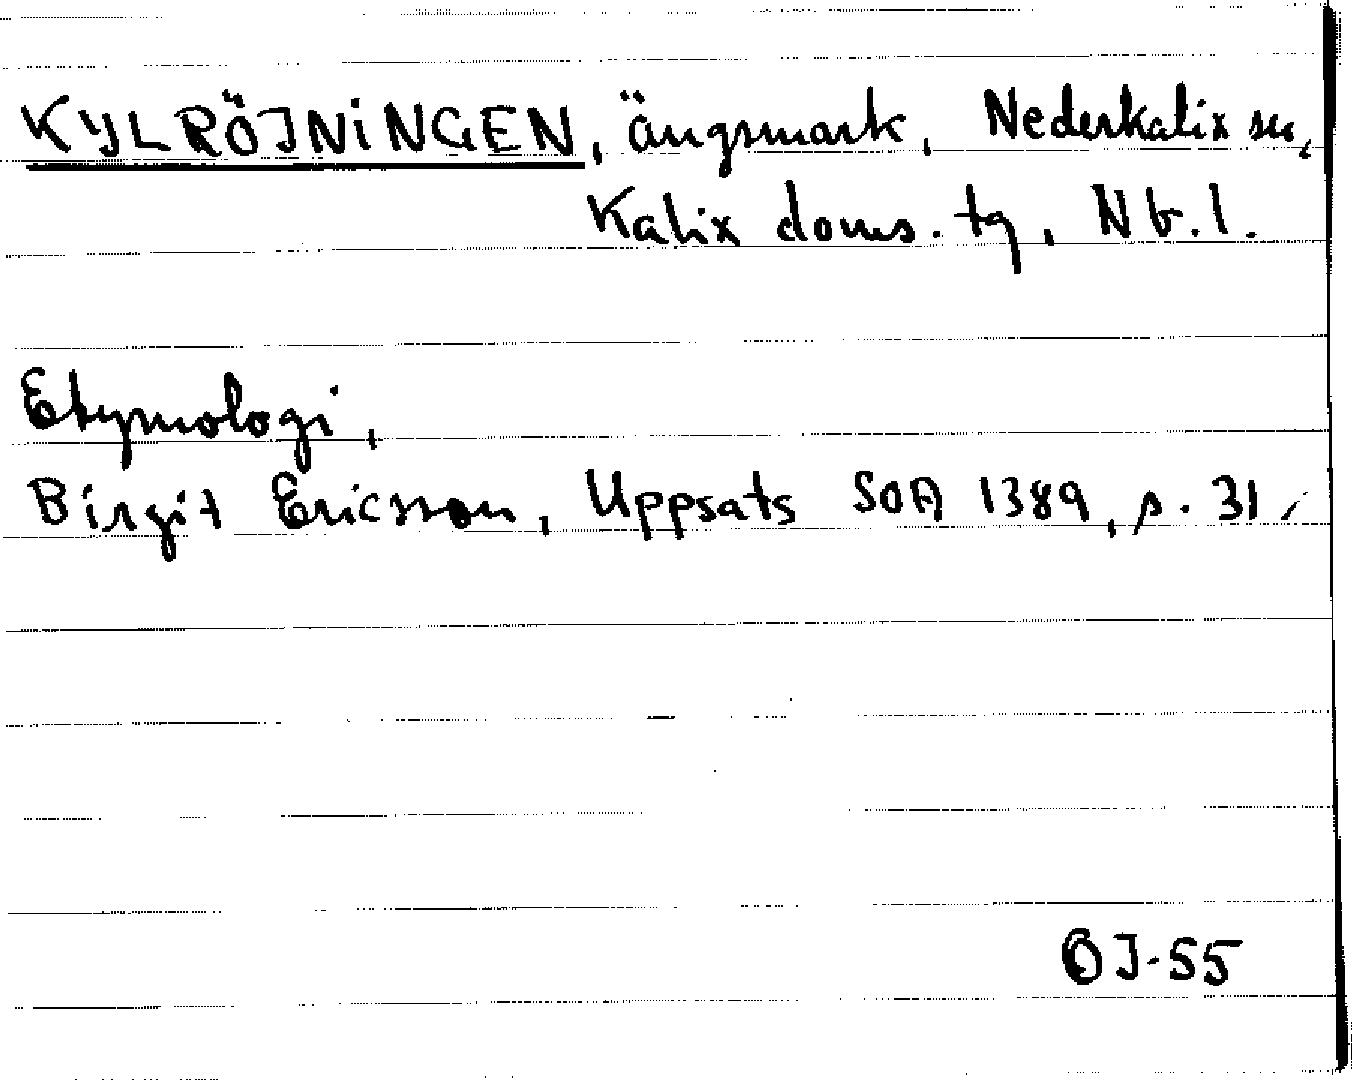 KYLRÖJNINGEN, ängsmark, Nederkalix sn,
Kalix doms. tg, Nb. l.
Etymologi,
Birgit Ericsson, Uppsats SOA 1389, s. 31
OJ-55